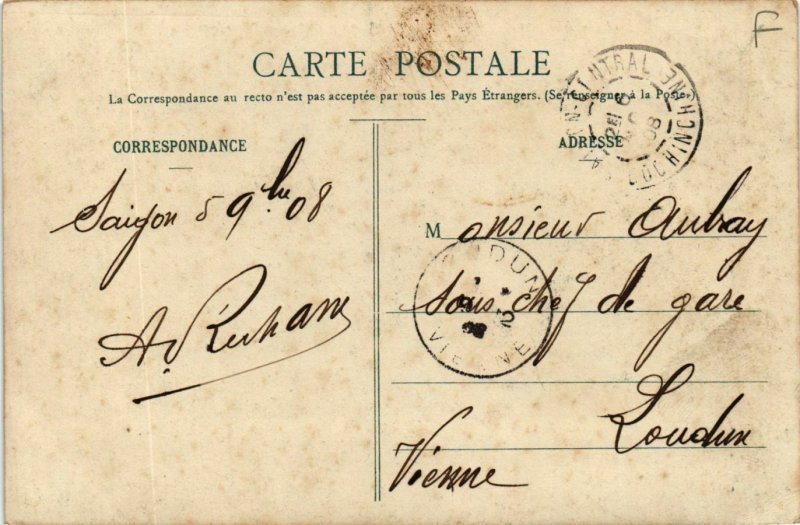 F
CARTE POSTALE
La Correspondance au recto n'est pas acceptée par tous les Pays Étrangers. (Se renseigner à la Poste)
CORRESPONDANCE
ADRESSE
SAIGON-CENTRAL COCHINCHINE
Saigon 5 9bre 08
Monsieur Aubay
sous chef de gare
Loudun
Vienne
LOUDUN
VIENNE
A.